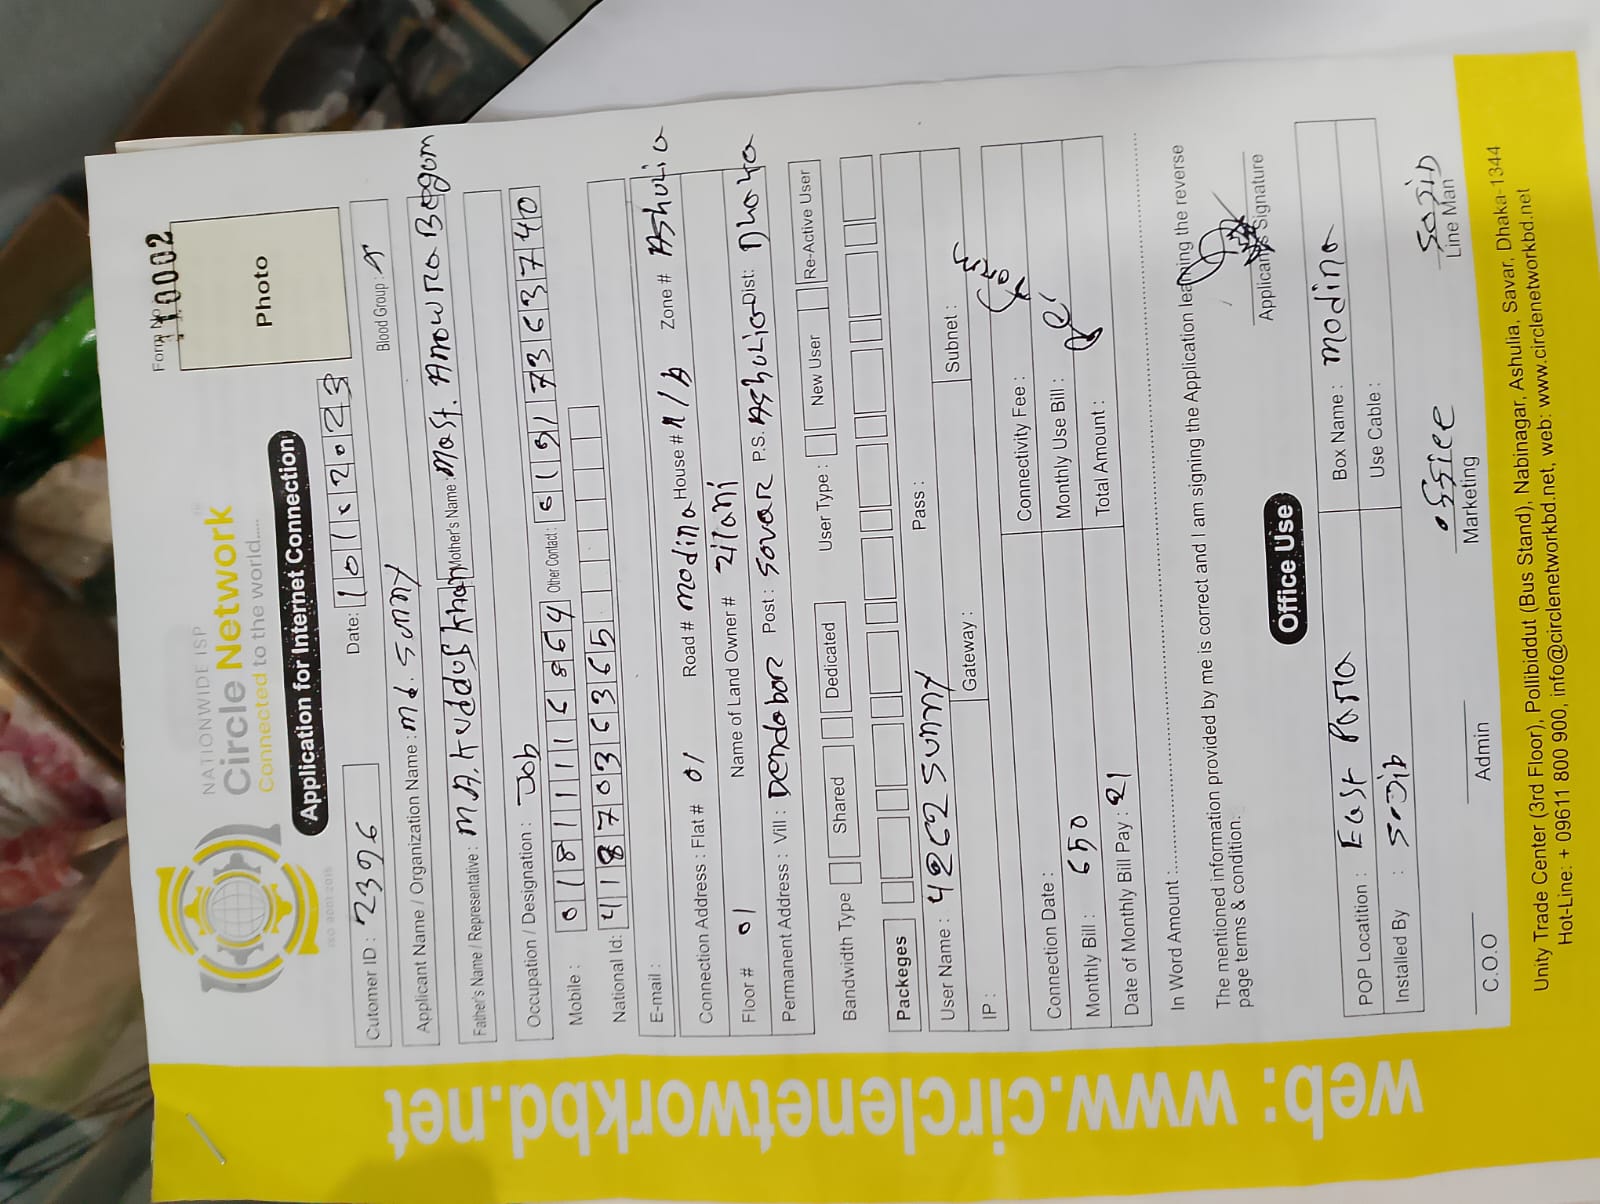 NATIONWIDE ISP
Circle Network
Connected to the world.....
ISO 9001:2015
Form No 110002
Photo
Application for Internet Connection
Cutomer ID : 2396
Date:
Blood Group
Applicant Name / Organization Name : Md. Sunny
Father's Name / Representative : M.A. Kuddus Khan Mother's Name : Most. Anowra Begom
Occupation / Designation : Job
Mobile : 01811116864 Other Contact :
National Id: 4187036365
E-mail :
Connection Address : Flat # 01 Road # Modina House # Zone # Ashulia
Floor # 01 Name of Land Owner # Zilani
Permanent Address : Vill : Dendabor Post : Savar P.S. Ashulia Dist: Dhaka
Bandwidth Type Shared Dedicated User Type : New User Re-Active User
Packeges
User Name : Sunny Pass :
IP : Gateway : Subnet :
Connection Date : Connectivity Fee :
Monthly Bill : 650 Monthly Use Bill :
Date of Monthly Bill Pay : 21 Total Amount :
In Word Amount :
The mentioned information provided by me is correct and I am signing the Application learning the reverse
page terms & condition.
Applicant's Signature
Office Use
POP Locatition : East Para Box Name : Modina
Installed By : Sojib Use Cable :
office
C.O.O Admin Marketing Line Man
Unity Trade Center (3rd Floor), Pollibiddut (Bus Stand), Nabinagar, Ashulia, Savar, Dhaka-1344
Hot-Line: + 09611 800 900, info@circlenetworkbd.net, web: www.circlenetworkbd.net
web: www.circlenetworkbd.net